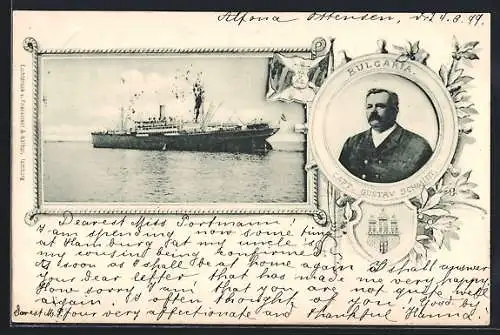 Altona Ottensen, d. 4.8.99.
BULGARIA.
CAPT. GUSTAV SCHMIDT
Dearest Miss Portmann
I am spending now some time
at Hamburg at my uncle's
my cousin being confirmed.
As soon as I shall be at home again I shall answer
Your dear letter that has made me very happy.
How sorry, I am that you are not quite well
again. I'd often thought of you. Good by
four very affectionate and thankful Hanna.